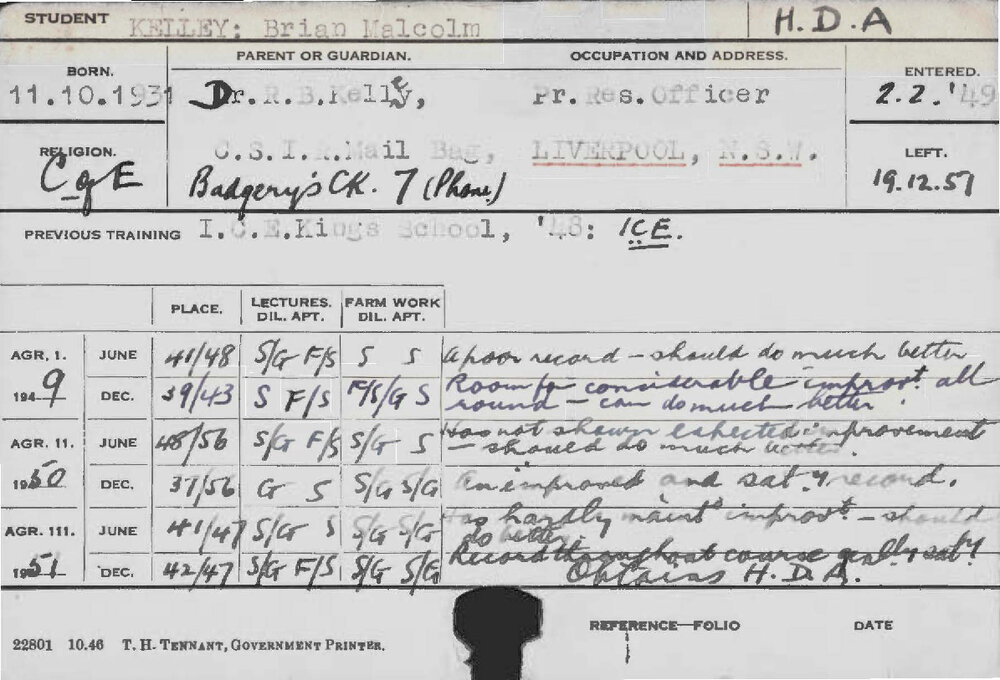 STUDENT KELLEY: Brian Malcolm H.D.A
PARENT OR GUARDIAN. OCCUPATION AND ADDRESS.
BORN. ENTERED.
11.10.1931 Dr. R.B.Kelley, Pr. Res. Officer 2.2.'49
RELIGION. C.S.I.R. Mail Bag, LIVERPOOL, N.S.W. LEFT.
C of E Badgery's CK. 7 (Phone) 19.12.51
PREVIOUS TRAINING I.C.E. Kings School, '48: ICE.
PLACE. LECTURES. FARM WORK
DIL. APT. DIL. APT.
AGR, 1. JUNE 41/48 S/G F/S S S A poor record - should do much better
1949 DEC. 39/43 S F/S F/S/G S Room for considerable improvt. all
round - can do much better.
AGR. 11. JUNE 48/56 S/G F/S S/G S Has not shown expected improvement
- should do much better.
1950 DEC. 37/56 G S S/G S/G An improved and sat.y record.
AGR. 111. JUNE 41/47 S/G S S/G S/G Has hardly maintd improvt. - should
do better.
1951 DEC. 42/47 S/G F/S S/G S/G Record throughout course genlly saty.
Obtains H.D.A.
REFERENCE-FOLIO DATE
22801 10.46 T. H. TENNANT, GOVERNMENT PRINTER.